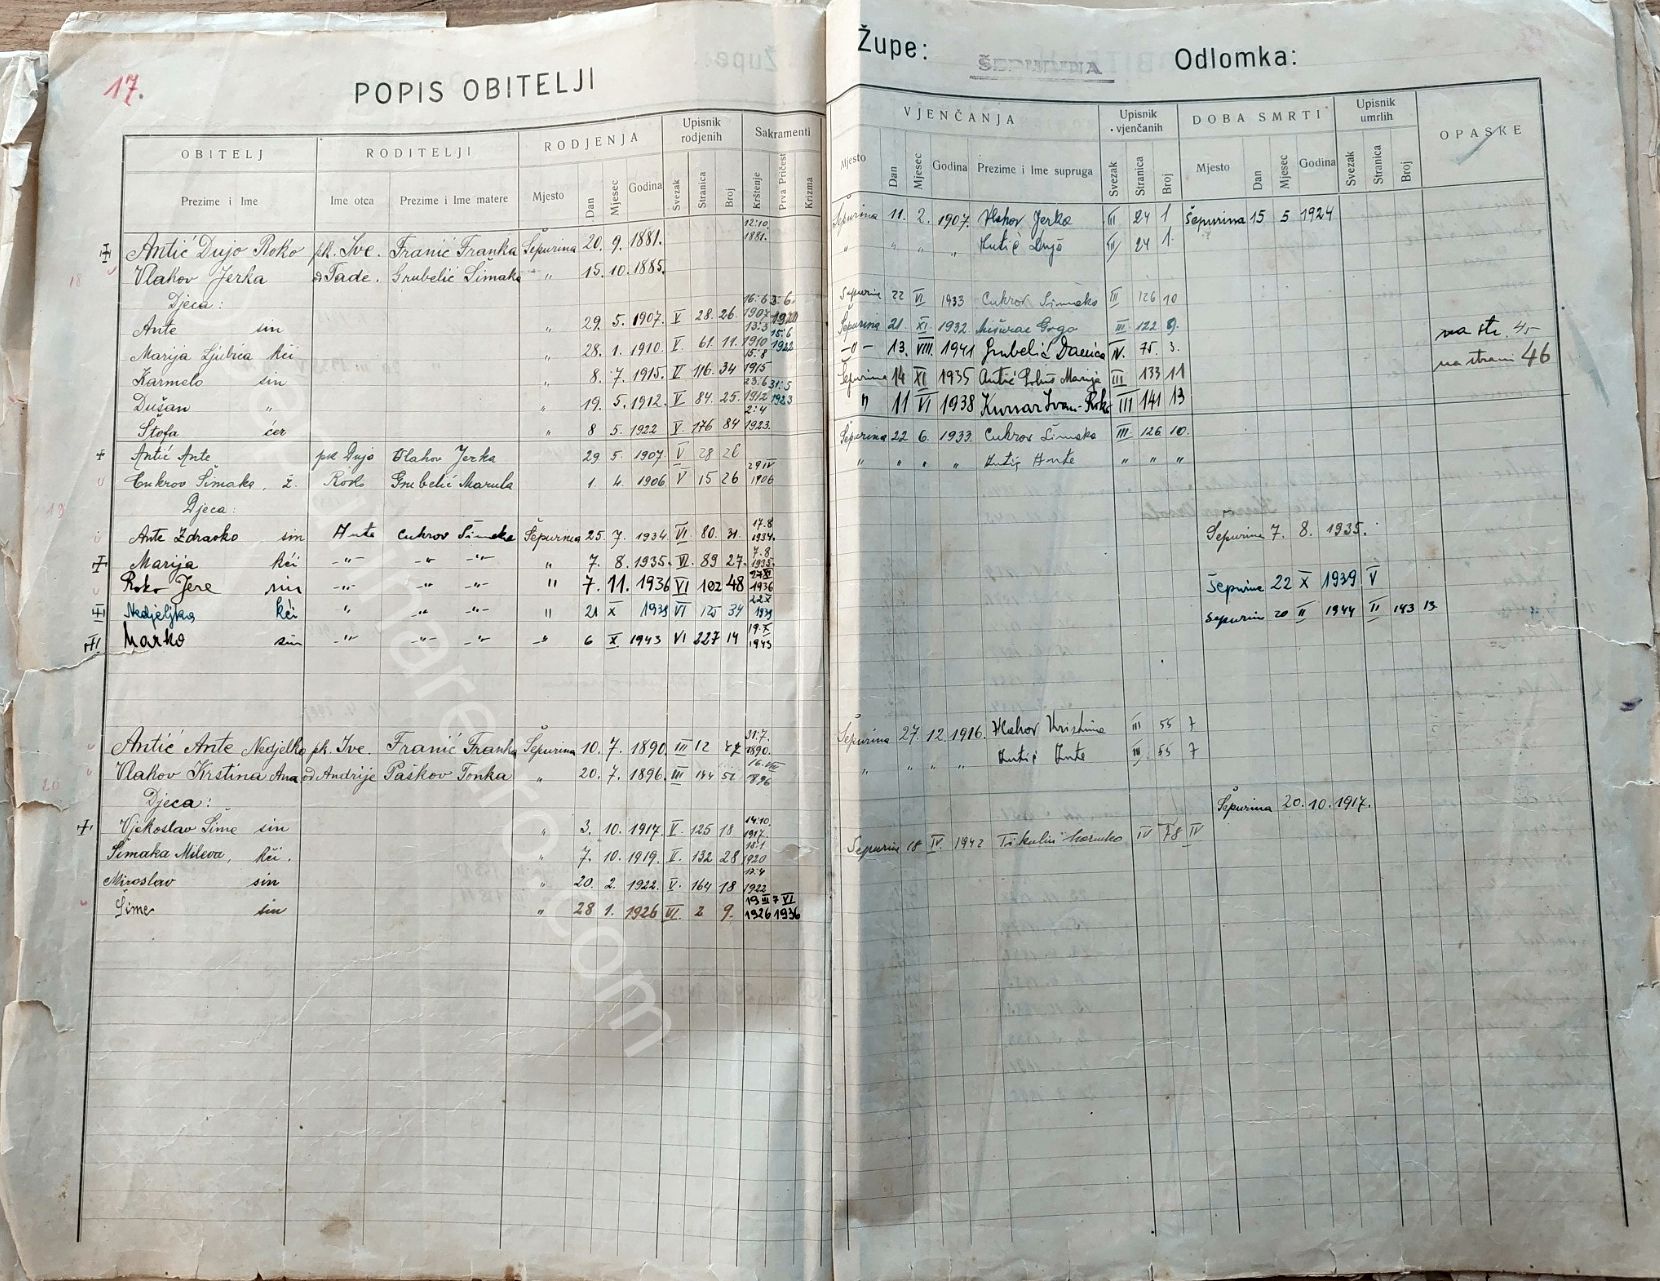 17.
POPIS OBITELJI
Župe: ŠEPURINA Odlomka:
OBITELJ RODITELJI RODJENJA Upisnik rodjenih Sakramenti VJENČANJA Upisnik vjenčanih DOBA SMRTI Upisnik umrlih OPASKE
Prezime i Ime Ime otca Prezime i Ime matere Mjesto Dan Mjesec Godina Svezak Stranica Broj Krštenje Prva Pričest Krizma Mjesto Dan Mjesec Godina Prezime i Ime supruga Svezak Stranica Broj Mjesto Dan Mjesec Godina Svezak Stranica Broj
Antić Dujo Roko pk. Ive. Franić Franka Šepurina 20. 9. 1881. 12.10. 1881. Šepurina 11. 2. 1907. Vlahov Jerka III 24 1 Šepurina 15 5 1924
18 Vlahov Jerka od Tade. Grubelić Šimaka " 15. 10. 1885. " " " " Antić Dujo III 24 1.
Djeca:
Ante sin " 29. 5. 1907. V 28. 26 16.6 1907 Šepurina 22 VI 1933 Cukrov Šimaka III 126 10 na str. 4.
Marija Ljubica kći " 28. 1. 1910. V. 61. 11. 13.3 1910 15.6 1922 Šepurina 21. XI. 1932 Gogo III. 122 9.
Karmelo sin 8. 7. 1915. V 116. 34 15.8 1915 -"- 13. VIII. 1941 Grubelić Danica IV. 75. 3. na strani 46
Dušan " " 19. 5. 1912. V 84. 25. 23.6 1912 31.5 1923 Šepurina 14 XI 1935 Antić Marija III 133 11
Stofa ćer " 8 5. 1922 V. 176 84 2.4 1923. " 11 VI 1938 Kursar Ivan-Roko III 141 13
Antić Ante pk Dujo Vlahov Jerka 29 5. 1907 V 28 26 Šepurina 22. 6. 1933. Cukrov Šimaka III. 126 10.
Cukrov Šimaka, ž. Roko Grubelić Marula 1. 4. 1906 V 15 26 29 IV 1906 " " " " Antić Ante " " "
19 Djeca:
Ante Zdravko sin Ante Cukrov Šimaka Šepurina 25. 7. 1934. VI 80. 31. 17.8 1934.
Marija kći -"- -"- -"- " 7. 8. 1935. VI. 89 27. 7.8 1935. Šepurina 7. 8. 1935.
Roko Jere sin -"- -"- -"- " 7. 11. 1936 VI 102 48 1936
Nedjeljka kći " -"- -"- " 21 X 1939 VI 125 34 22 X 1939 Šepurina 22 X 1939 V
Marko sin -"- -"- -"- " 6 X 1943 VI 227 14 19.X 1943 Šepurina 20 II 1944 II 143 13.
Antić Ante Nedjelko pk. Ive. Franić Franka Šepurina 10. 7. 1890. III 12 31.7. 1890. Šepurina 27. 12. 1916. Vlahov Kristina III 55 7
20 Vlahov Krstina Ana od Andrije Paškov Tonka " 20. 7. 1896. III 1896 " " " " Antić Ante III 55 7
Djeca:
Vjekoslav Šime sin " 3. 10. 1917. V. 125 18 14.10. 1917. Šepurina 20. 10. 1917.
Šimaka Mileva, kći. " 7. 10. 1919. V. 132 28 18.1 1920 Šepurina 18 IV. 1942 IV 78 IV
Miroslav sin " 20. 2. 1922. V. 164 18 1922
Šime sin " 28 1. 1926 VI. 2 9. 19 III 1926 7 VI 1936